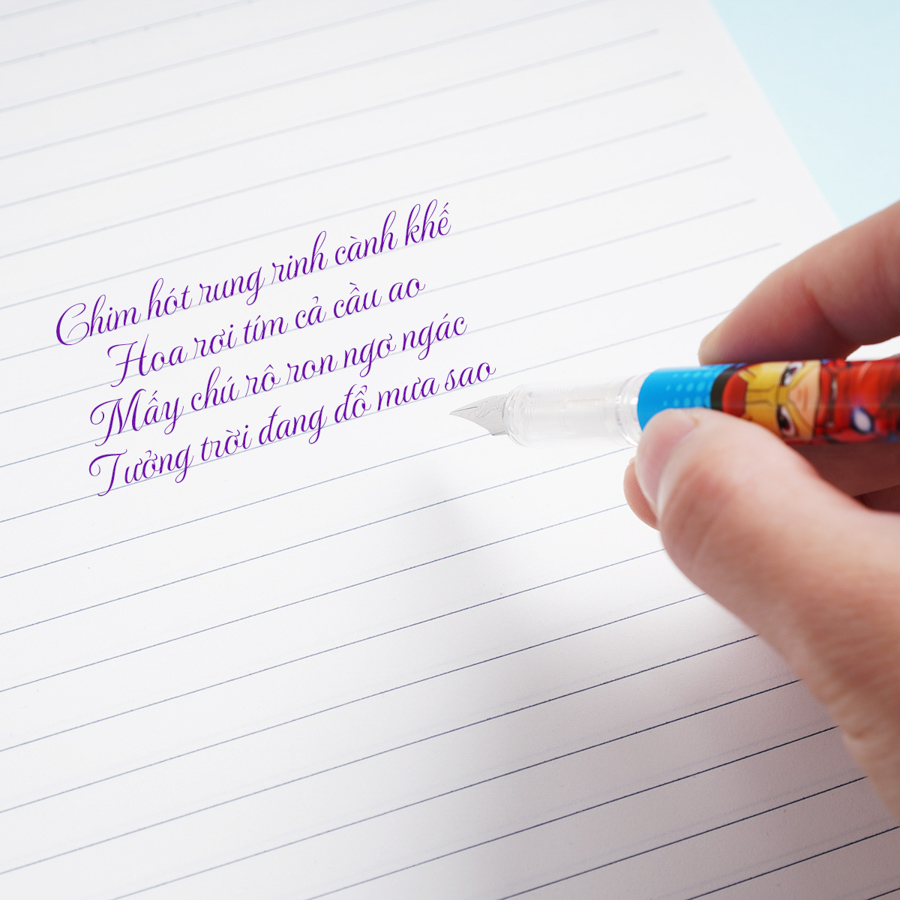 Chim hót rung rinh cành khế
Hoa rơi tím cả cầu ao
Mấy chú rô ron ngơ ngác
Tưởng trời đang đổ mưa sao